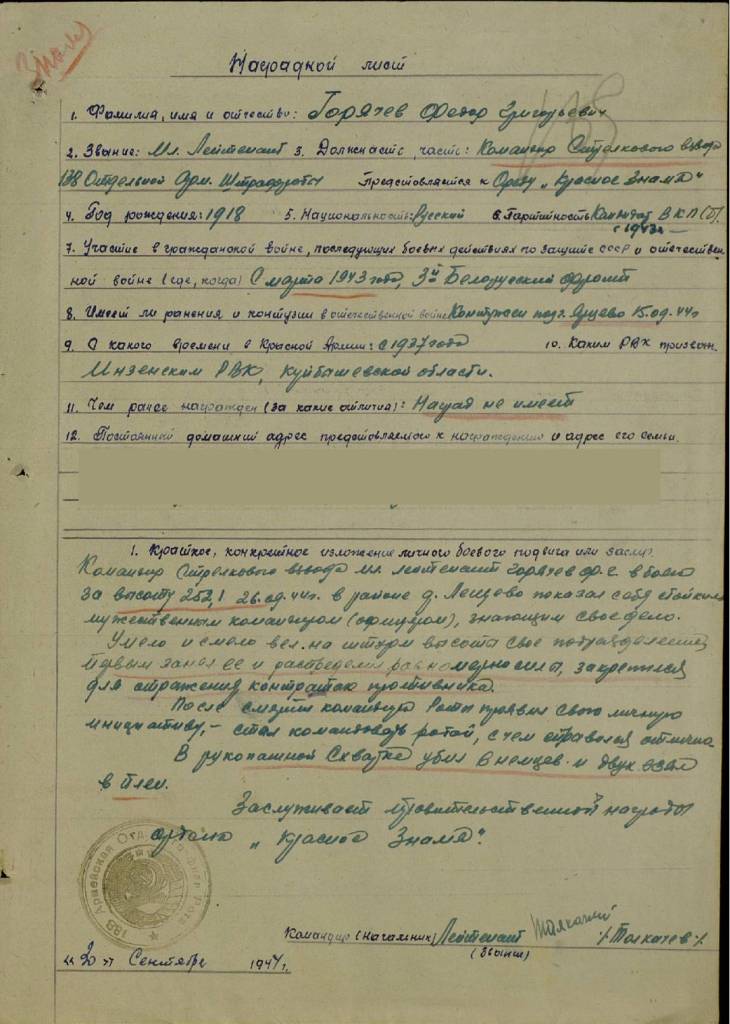 Знамя
Наградной лист
1. Фамилия, имя и отчество: Горячев Федор Григорьевич
2. Звание: Мл. Лейтенант 3. Должность, часть: Командир Стрелкового взвода
138 Отдельной Арм. Штрафроты Представляется к Орд. „Красное Знамя"
4. Год рождения: 1918 5. Национальность: Русский 6. Партийность Кандидат ВКП(б)
с 1943г.
7. Участие в гражданской войне, последующих боевых действиях по защите СССР и отечествен
ной войне (где, когда) С марта 1943 года, 3й Белорусский фронт
8. Имеет ли ранения и контузии в отечественной войне Контужен под г. 15.09.44г
9. С какого времени в Красной Армии: с 1937 года 10. Каким РВК призван:
Инзенским РВК, Куйбышевской области.
11. Чем ранее награжден (за какие отличия): Наград не имеет
12. Постоянный домашний адрес представляемого к награждению и адрес его семьи.
1. Краткое, конкретное изложение личного боевого подвига или заслуг.
Командир Стрелкового взвода мл. лейтенант Горячев Ф.Г. в бою
за высоту 252,1 26.09.44г. в районе д. Лещево показал себя стойким
мужественным командиром (офицером), знающим свое дело.
Умело и смело вел на штурм высоты свое подразделение,
первым занял ее и распределив равномерно силы, закрепился
для отражения контратак противника.
После смерти командира Роты проявил свою личную
инициативу,- стал командовать ротой, с чем справился отлично.
В рукопашной Схватке убил 6 немцев и двух взял
в плен.
Заслуживает правительственной награды
ордена „Красное Знамя".
Командир (Начальник) Лейтенант /Толкачев/
(Звание)
Сентября 1944г.